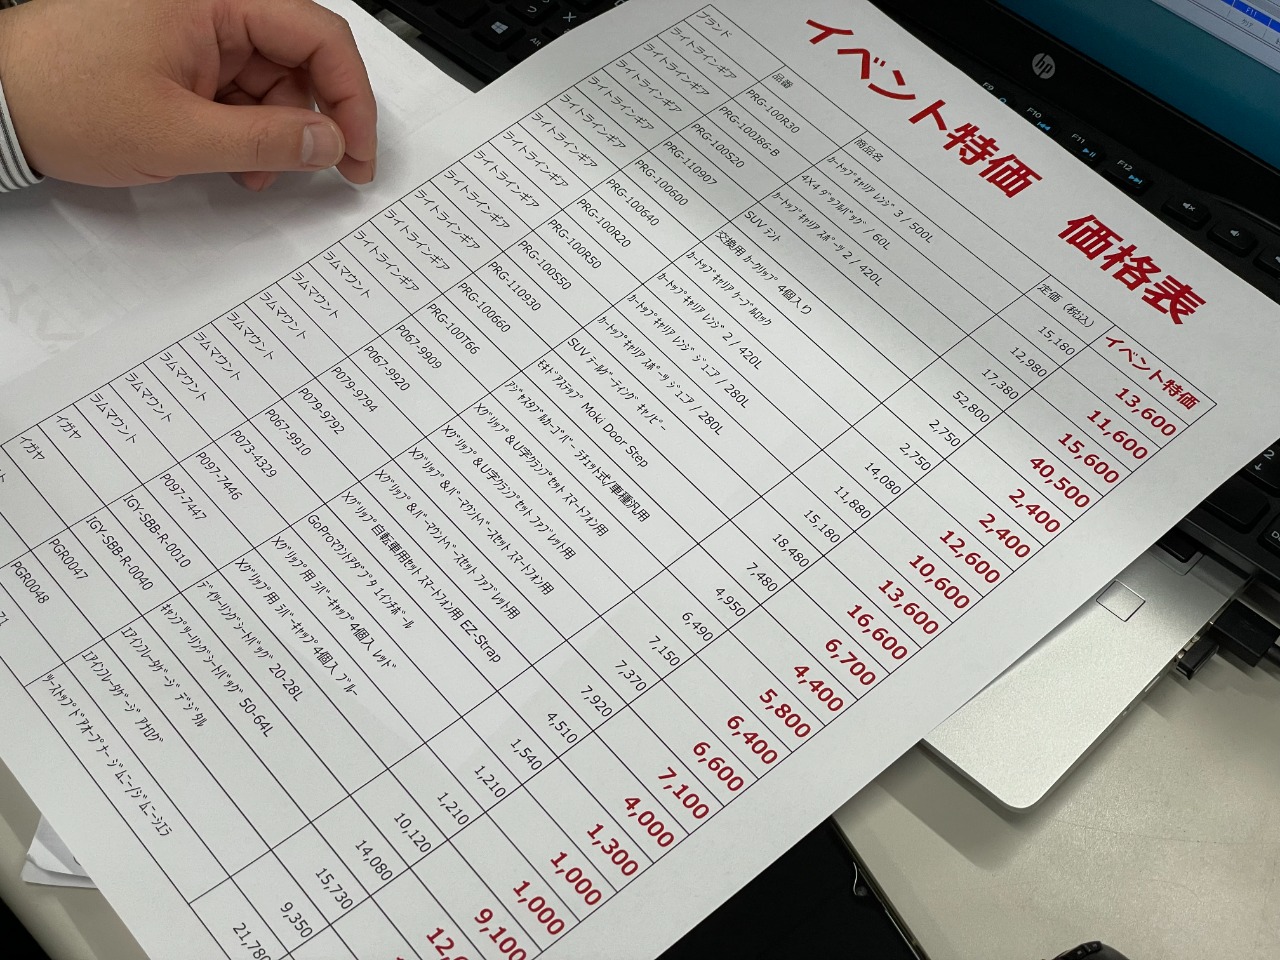 イベント特価 価格表
ブランド 品番 商品名 定価（税込） イベント特価
ライトラインギア PRG-100R30 ｶｰﾄｯﾌﾟｷｬﾘｱ ﾚﾝｼﾞ 3 / 500L 15,180 13,600
ライトラインギア PRG-100J86-B 4X4 ﾀﾞｯﾌﾙﾊﾞｯｸﾞ / 60L 12,980 11,600
ライトラインギア PRG-100S20 ｶｰﾄｯﾌﾟｷｬﾘｱ ｽﾎﾟｰﾂ 2 / 420L 17,380 15,600
ライトラインギア PRG-110907 SUV ﾃﾝﾄ 52,800 40,500
ライトラインギア PRG-100600 交換用 ｶｰｸﾘｯﾌﾟ 4個入り 2,750 2,400
ライトラインギア PRG-100640 ｶｰﾄｯﾌﾟｷｬﾘｱ ｹｰﾌﾞﾙﾛｯｸ 2,750 2,400
ライトラインギア PRG-100R20 ｶｰﾄｯﾌﾟｷｬﾘｱ ﾚﾝｼﾞ 2 / 420L 14,080 12,600
ライトラインギア PRG-100R50 ｶｰﾄｯﾌﾟｷｬﾘｱ ﾚﾝｼﾞ ｼﾞｭﾆｱ / 280L 11,880 10,600
ライトラインギア PRG-100S50 ｶｰﾄｯﾌﾟｷｬﾘｱ ｽﾎﾟｰﾂ ｼﾞｭﾆｱ / 280L 15,180 13,600
ライトラインギア PRG-110930 SUV ﾃｰﾙｹﾞｰﾃｨﾝｸﾞ ｷｬﾉﾋﾟｰ 18,480 16,600
ライトラインギア PRG-100660 ﾓｷﾄﾞｱｽﾃｯﾌﾟ Moki Door Step 7,480 6,700
ライトラインギア PRG-100T66 ｱｼﾞｬｽﾀﾌﾞﾙｶｰｺﾞﾊﾞｰ ﾗﾁｪｯﾄ式/車種汎用 4,950 4,400
ラムマウント P067-9909 Xｸﾞﾘｯﾌﾟ&U字ｸﾗﾝﾌﾟｾｯﾄ ｽﾏｰﾄﾌｫﾝ用 6,490 5,800
ラムマウント P067-9920 Xｸﾞﾘｯﾌﾟ&U字ｸﾗﾝﾌﾟｾｯﾄ ﾌｧﾌﾞﾚｯﾄ用 7,150 6,400
ラムマウント P079-9794 Xｸﾞﾘｯﾌﾟ&ﾊﾞｰﾏｳﾝﾄﾍﾞｰｽｾｯﾄ ｽﾏｰﾄﾌｫﾝ用 7,370 6,600
ラムマウント P079-9792 Xｸﾞﾘｯﾌﾟ&ﾊﾞｰﾏｳﾝﾄﾍﾞｰｽｾｯﾄ ﾌｧﾌﾞﾚｯﾄ用 7,920 7,100
ラムマウント P067-9910 Xｸﾞﾘｯﾌﾟ自転車用ｾｯﾄ ｽﾏｰﾄﾌｫﾝ用 EZ-Strap 4,510 4,000
ラムマウント P073-4329 GoProﾏｳﾝﾄｱﾀﾞﾌﾟﾀ 1ｲﾝﾁﾎﾞｰﾙ 1,540 1,300
ラムマウント P097-7446 Xｸﾞﾘｯﾌﾟ用 ﾗﾊﾞｰｷｬｯﾌﾟ4個入 ﾚｯﾄﾞ 1,210 1,000
ラムマウント P097-7447 Xｸﾞﾘｯﾌﾟ用 ﾗﾊﾞｰｷｬｯﾌﾟ4個入 ﾌﾞﾙｰ 1,210 1,000
イガヤ IGY-SBB-R-0010 ﾃﾞｲﾂｰﾘﾝｸﾞｼｰﾄﾊﾞｯｸﾞ 20-28L 10,120 9,100
イガヤ IGY-SBB-R-0040 ｷｬﾝﾌﾟﾂｰﾘﾝｸﾞｼｰﾄﾊﾞｯｸﾞ 50-64L 14,080
PGR0047 ｴｱｲﾝﾌﾚｰﾀｹﾞｰｼﾞ ﾃﾞｼﾞﾀﾙ 15,730
PGR0048 ｴｱｲﾝﾌﾚｰﾀｹﾞｰｼﾞ ｱﾅﾛｸﾞ 9,350
ﾂｰｽﾄｯﾌﾟﾄﾞｱｵｰﾌﾟﾅｰ ｼﾞﾑﾆｰ/ｼﾞﾑﾆｰｼｴﾗ 21,780
hp
F9
F10
F11
F12
Alt
F11